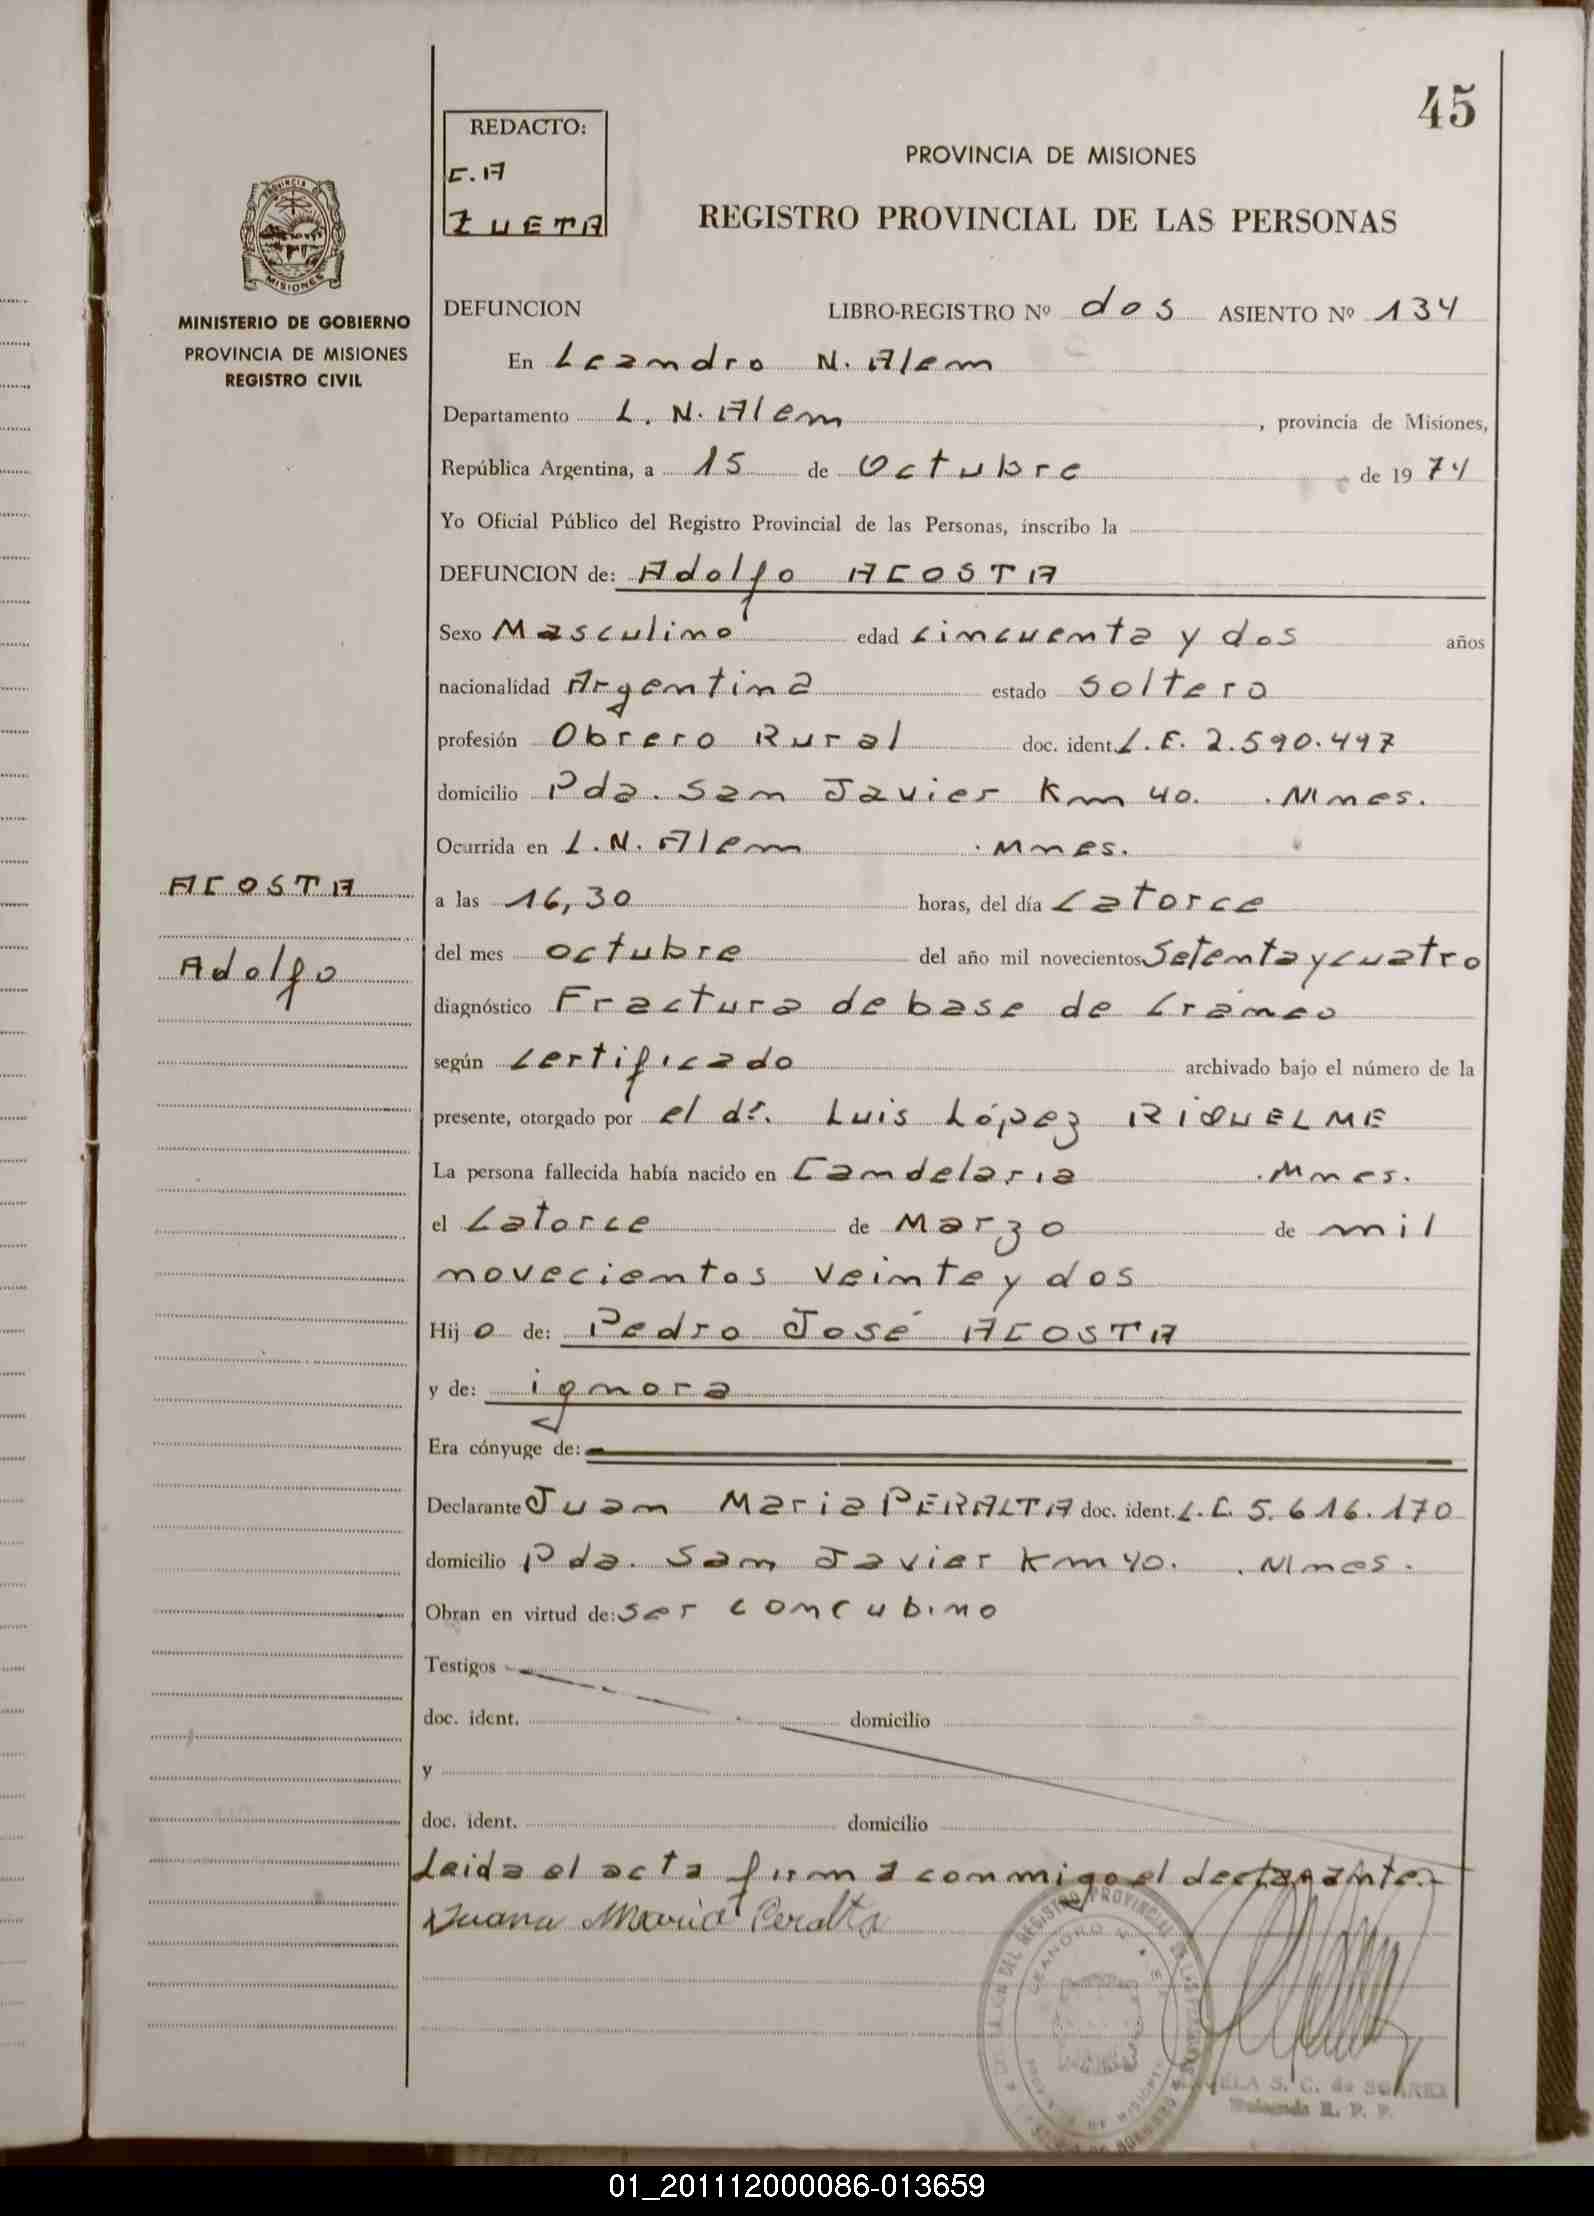 45
REDACTO:
C.A
ZUETA
PROVINCIA DE MISIONES
REGISTRO PROVINCIAL DE LAS PERSONAS
PROVINCIA DE
MISIONES
MINISTERIO DE GOBIERNO
PROVINCIA DE MISIONES
REGISTRO CIVIL
DEFUNCION LIBRO-REGISTRO Nº dos ASIENTO Nº 134
En Leandro N. Alem
Departamento L. N. Alem, provincia de Misiones,
República Argentina, a 15 de Octubre de 1974
Yo Oficial Público del Registro Provincial de las Personas, inscribo la
DEFUNCION de: Adolfo ACOSTA
Sexo Masculino edad cincuenta y dos años
nacionalidad Argentina estado Soltero
profesión Obrero Rural doc. ident. L.E. 2.590.497
domicilio Pda. San Javier Km 40. .Mnes.
Ocurrida en L.N. Alem .Mnes.
ACOSTA
Adolfo
a las 16,30 horas, del día Catorce
del mes octubre del año mil novecientos Setenta y cuatro
diagnóstico Fractura de base de Cráneo
según Certificado archivado bajo el número de la
presente, otorgado por el dr. Luis López RIQUELME
La persona fallecida había nacido en Candelaria .Mnes.
el Catorce de Marzo de mil
novecientos veinte y dos
Hijo de: Pedro José ACOSTA
y de: ignora
Era cónyuge de:
Declarante Juan Maria PERALTA doc. ident. L.C. 5.616.170
domicilio Pda. San Javier Km 40. .Mnes.
Obran en virtud de: Ser concubino
Testigos
doc. ident. domicilio
y
doc. ident. domicilio
Leida el acta firma conmigo el declarante.
Juana Maria Peralta
S. C. de SUAREZ
R. P. P.
01_201112000086-013659